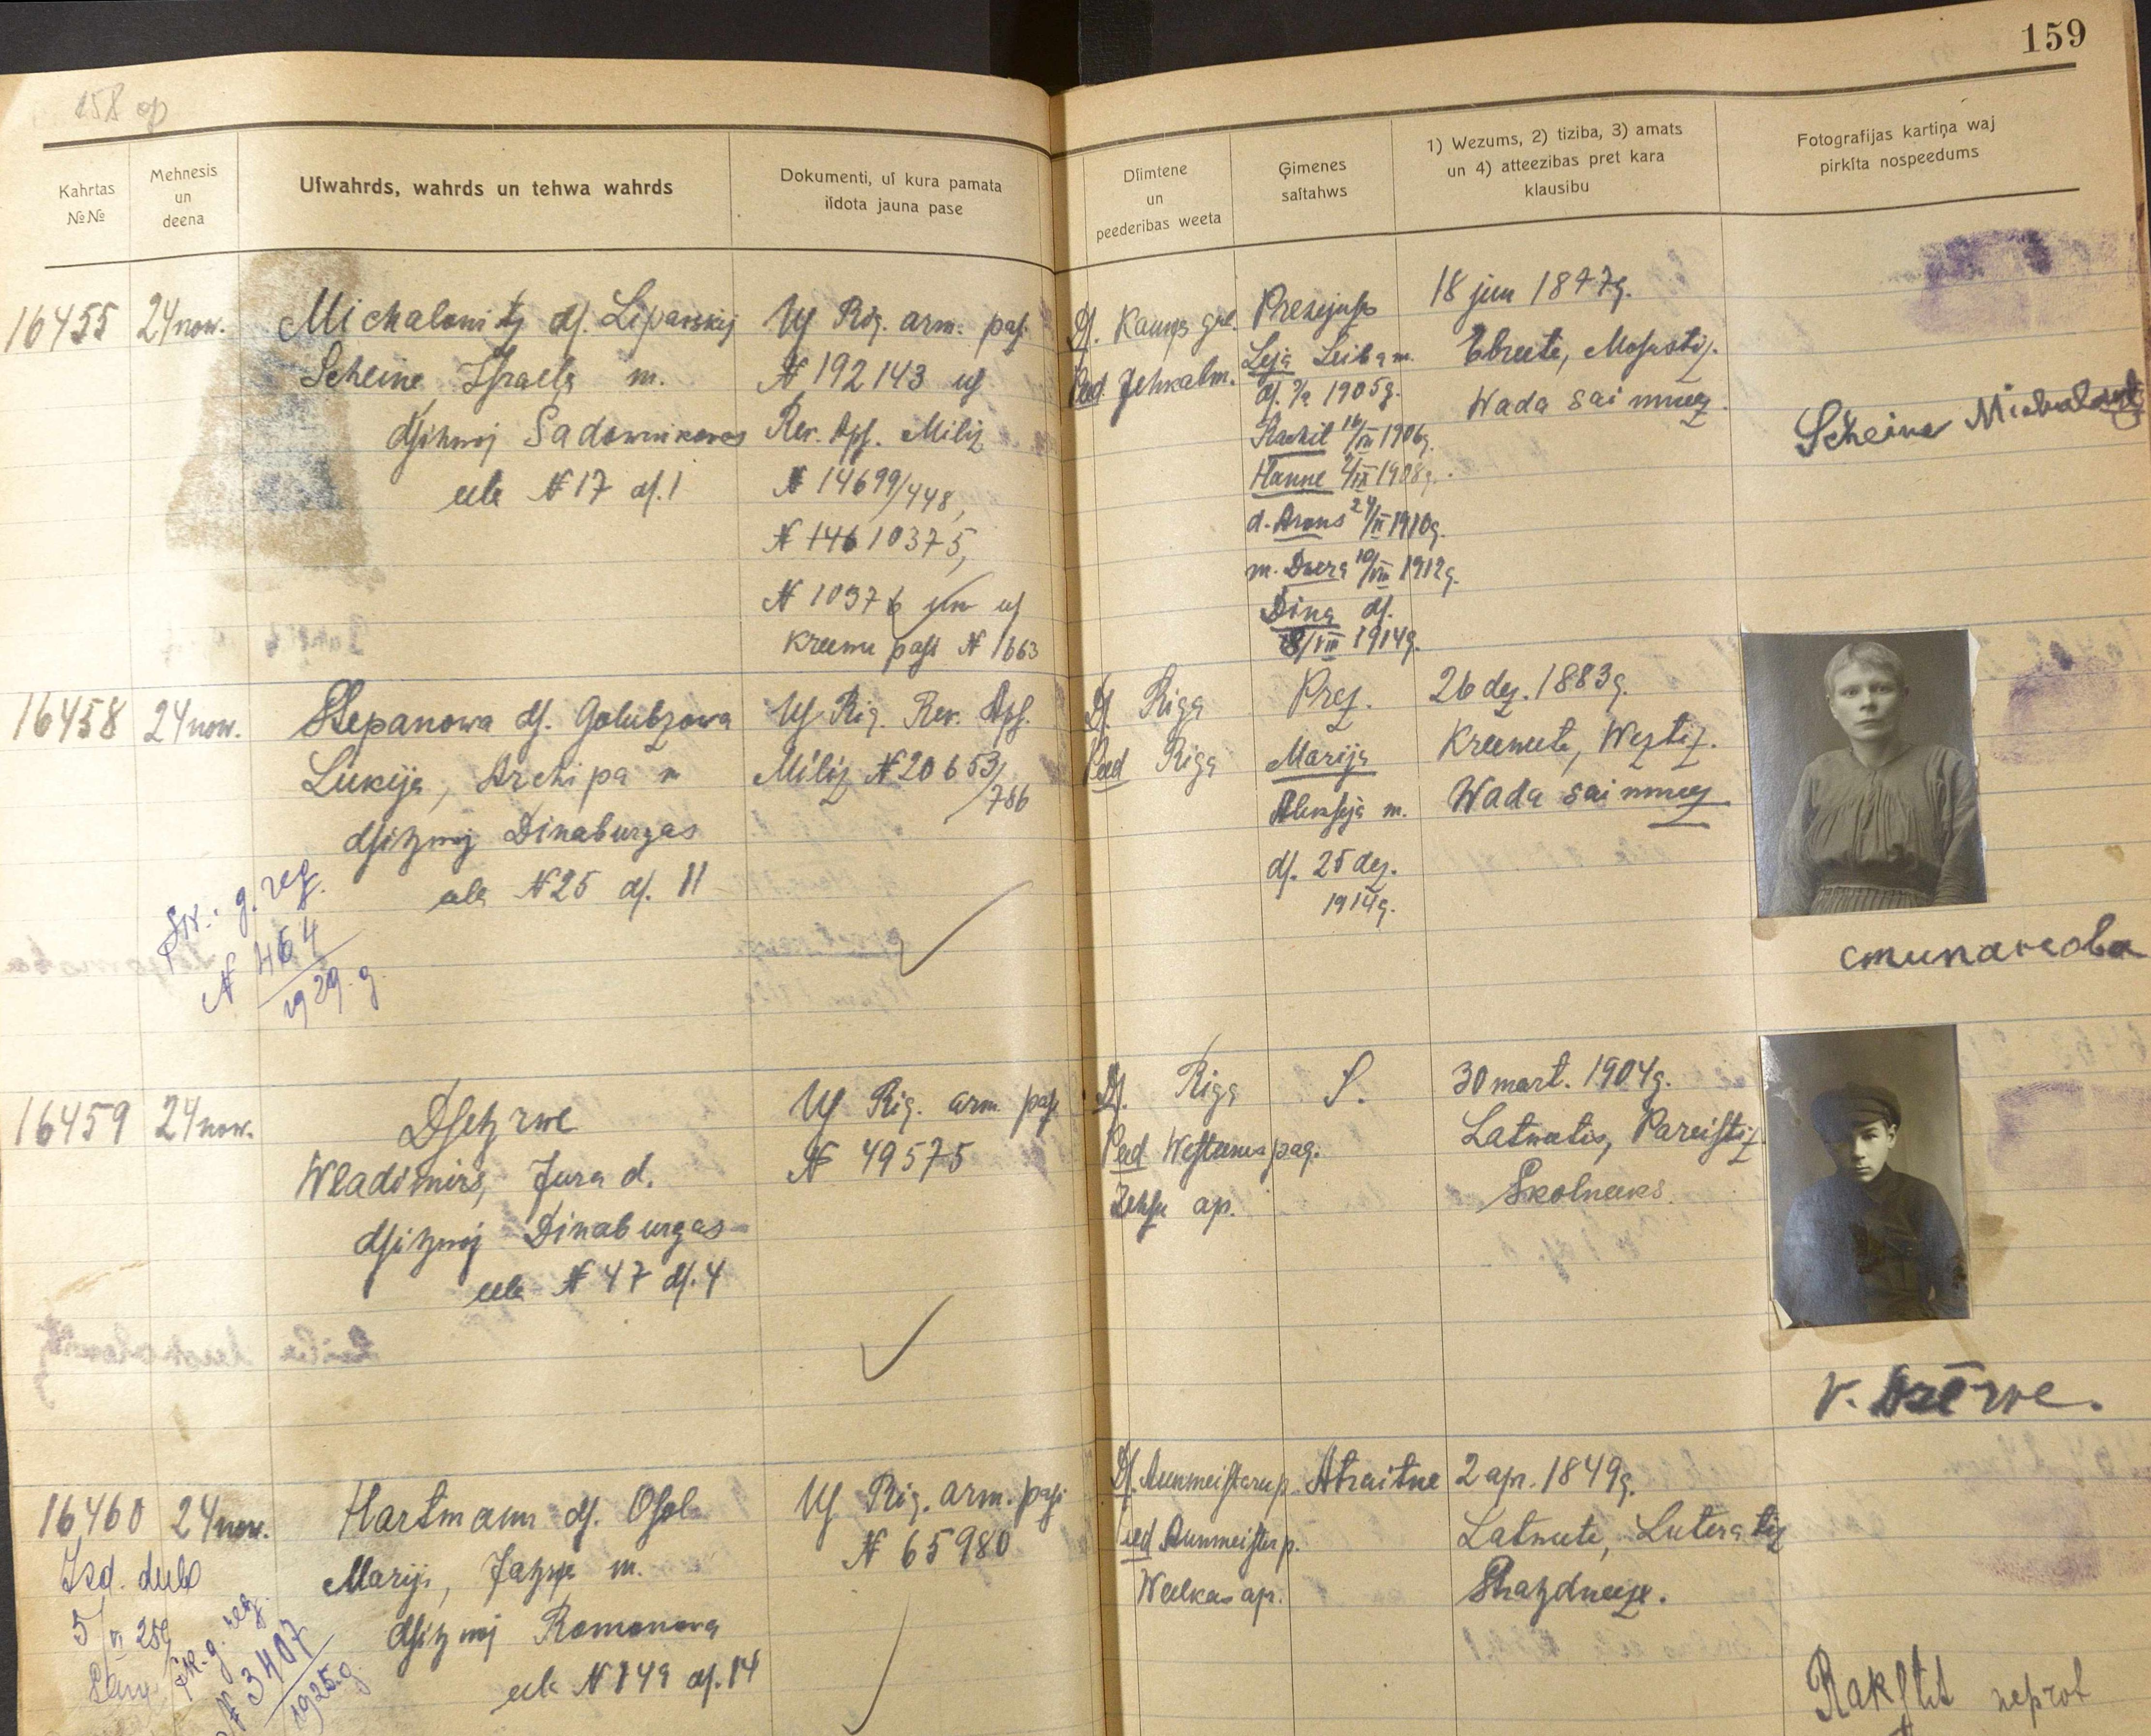 159
158 op
Kahrtas
№№
Mehnesis
un
deena
Uſwahrds, wahrds un tehwa wahrds
Dokumenti, uſ kura pamata
iſdota jauna pase
Dſimtene
un
peederibas weeta
Ģimenes
saſtahws
1) Wezums, 2) tiziba, 3) amats
un 4) atteezibas pret kara
klausibu
Fotografijas kartiņa waj
pirkſta nospeedums
16455
24 now.
Michalowitz dſ. Liparskij
Scheine, Israela m.
dſihwo Sadownikowas
eela N 17 dſ. 1
Uſ Rig. arm. paſ.
N 192143 uſ
Rev. Apſ. Miliz
N 14699/448,
N 14610375,
N 10376 un uſ
Kreewu paſs N 1663
Dſ. Kaunas gub.
Peed Jehkabm.
Prezejuſs
Leja Leiba m.
1905g.
Rachil 16/III 1906g.
Hanne 2/IX 1908g.
d. Arons 24/II 1910g.
m. Dwera 10/VIII 1912g.
Dina dſ.
8/VIII 1914g.
18 jun 1877g.
Ebreete, Mosustiz.
Wada saimneez.
Scheine Michalowitz
16458
24 now.
Stepanowa dſ. Golubzowa
Lukija, Archipa m
dſihwo Dinaburgas
eela N 25 dſ. 11
Uſ Rig. Rev. Apſ.
Miliz N 20653/
786
Dſ. Riga
Peed Riga
Prez.
Marija
Alekseja m.
dſ. 25 dez.
1914g.
26 dez. 1883g.
Kreewete, Weztiz.
Wada saimneez
g. reg.
N 464
1929. g
стипанова
16459
24 now.
Dſehrwe
Wladimirs, Jura d.
dſihwo Dinaburgas
eela N 47 dſ. 4
Uſ Rig. arm paſ
N 49575
Dſ. Riga
Peed Westeenas pag.
Zehsu ap.
S.
30 mart. 1904g.
Latweetis, Pareiſtiz.
Skolneeks.
V. Dzērve.
16460
24 now.
Hartmann dſ. Oſol
Marija, Jahņa m.
dſihwo Romanowa
eela N 149 dſ. 14
Uſ Rig. arm. paſ.
N 65980
Dſ. Aumeiſteru p.
Peed Aumeiſteru p.
Walkas ap.
Atraitne
2 apr. 1849g.
Latweete, Luteratiz
Strahdneeze.
Izd. dubl
5/VI 25g
g. reg.
N 3407
1925. g
Rakſtit neprot